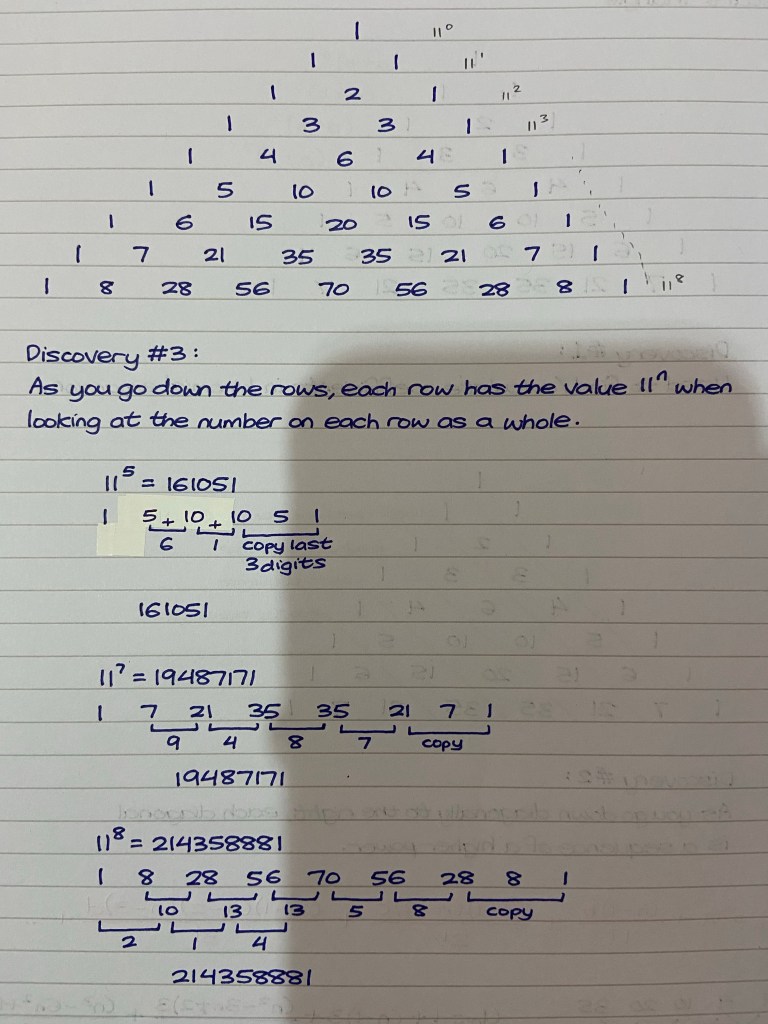 1 11⁰
1 1 11¹
1 2 1 11²
1 3 3 1 11³
1 4 6 4 1
1 5 10 10 5 1
1 6 15 20 15 6 1
1 7 21 35 35 21 7 1
1 8 28 56 70 56 28 8 1 11⁸
Discovery #3:
As you go down the rows, each row has the value 11ⁿ when
looking at the number on each row as a whole.
11⁵ = 161051
1 5 + 10 + 10 5 1
6 1 copy last
3 digits
161051
11⁷ = 19487171
1 7 21 35 35 21 7 1
9 4 8 7 copy
19487171
11⁸ = 214358881
1 8 28 56 70 56 28 8 1
10 13 13 5 8 copy
2 1 4
214358881